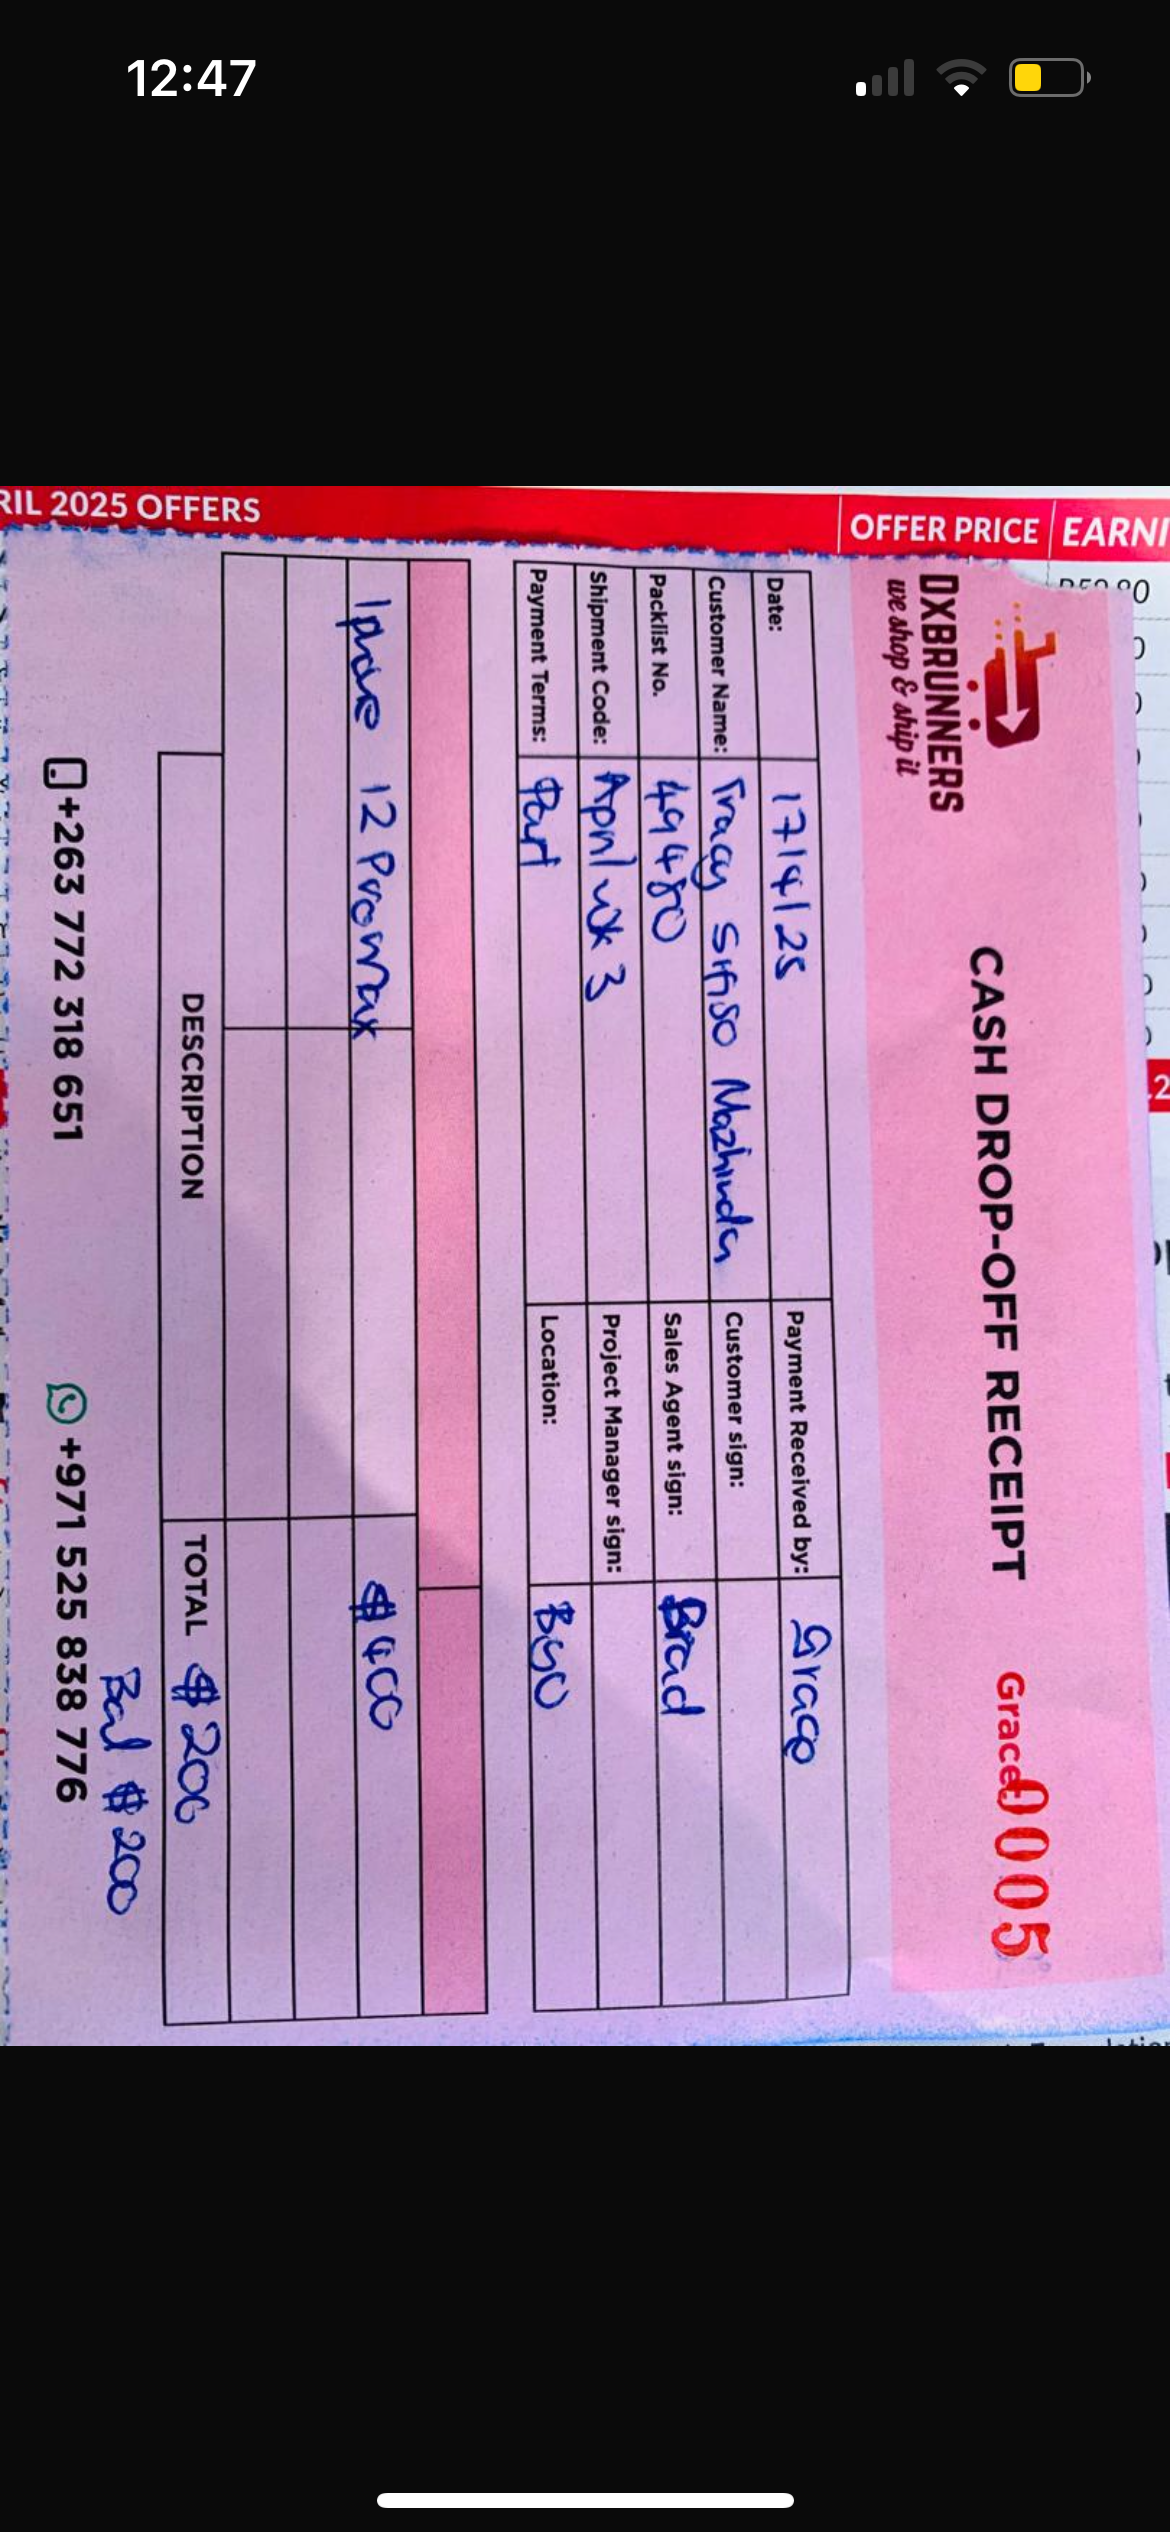 12:47
RIL 2025 OFFERS
OFFER PRICE
EARNI
DXBRUNNERS
we shop & ship it
CASH DROP-OFF RECEIPT
Grace 0005
Date: 17/4/25 Payment Received by: Grace
Customer Name: Tracy Sifiso Mazhindu Customer sign:
Packlist No. 49480 Sales Agent sign: Brad
Shipment Code: April wk 3 Project Manager sign:
Payment Terms: Part Location: Byo
Iphone 12 Promax $400
DESCRIPTION TOTAL $200
Bal $200
+263 772 318 651 +971 525 838 776